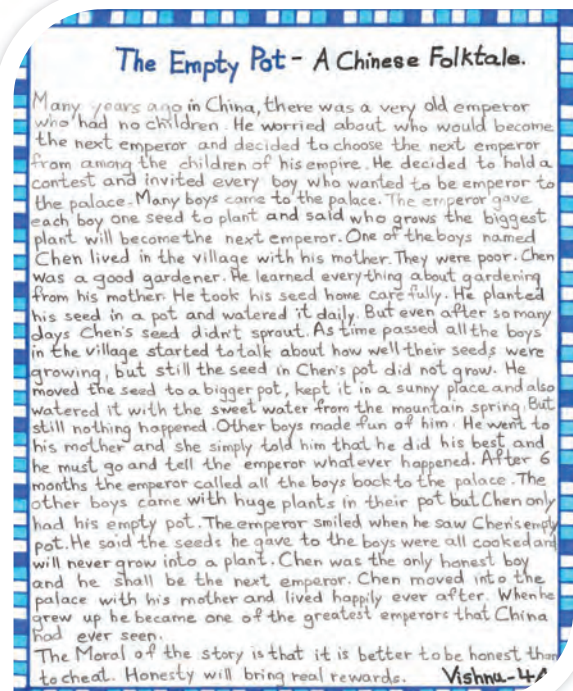 The Empty Pot - A Chinese Folktale.
Many years ago in China, there was a very old emperor
who had no children. He worried about who would become
the next emperor and decided to choose the next emperor
from among the children of his empire. He decided to hold a
contest and invited every boy who wanted to be emperor to
the palace. Many boys came to the palace. The emperor gave
each boy one seed to plant and said who grows the biggest
plant will become the next emperor. One of the boys named
Chen lived in the village with his mother. They were poor. Chen
was a good gardener. He learned everything about gardening
from his mother. He took his seed home carefully. He planted
his seed in a pot and watered it daily. But even after so many
days Chen's seed didn't sprout. As time passed all the boys
in the village started to talk about how well their seeds were
growing, but still the seed in Chen's pot did not grow. He
moved the seed to a bigger pot, kept it in a sunny place and also
watered it with the sweet water from the mountain spring. But
still nothing happened. Other boys made fun of him. He went to
his mother and she simply told him that he did his best and
he must go and tell the emperor whatever happened. After 6
months the emperor called all the boys back to the palace. The
other boys came with huge plants in their pot but Chen only
had his empty pot. The emperor smiled when he saw Chen's empty
pot. He said the seeds he gave to the boys were all cooked and
will never grow into a plant. Chen was the only honest boy
and he shall be the next emperor. Chen moved into the
palace with his mother and lived happily ever after. When he
grew up he became one of the greatest emperors that China
had ever seen.
The Moral of the story is that it is better to be honest than
to cheat. Honesty will bring real rewards. Vishnu-4A